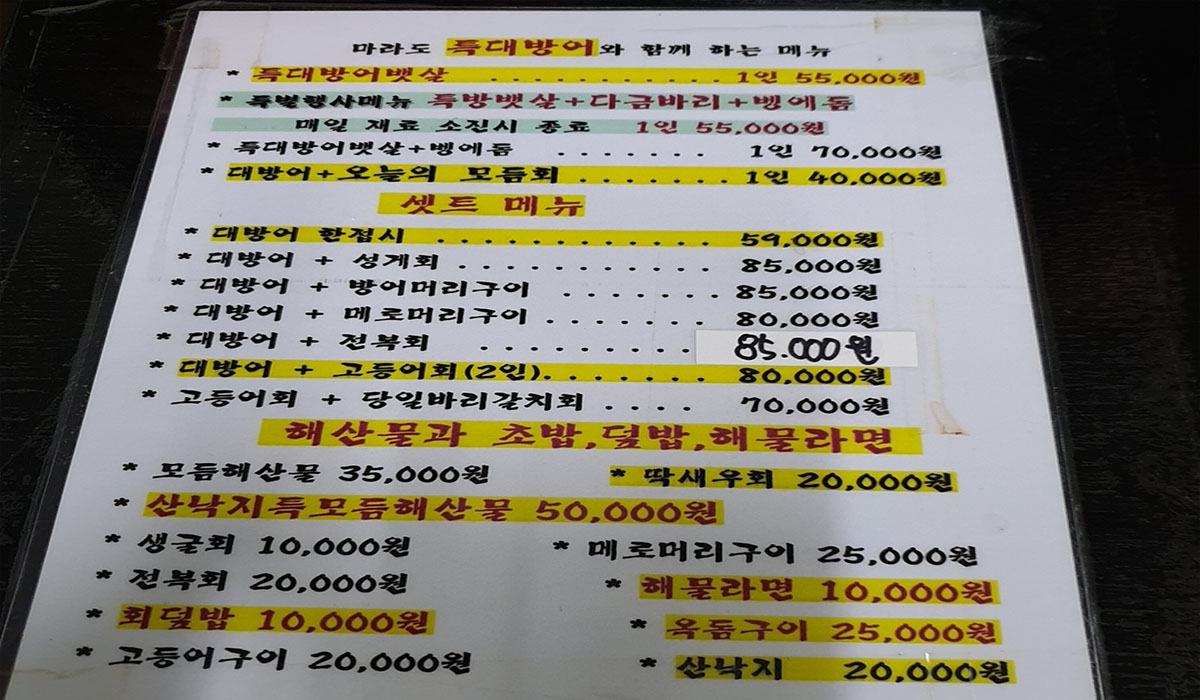 마라도 특대방어와 함께 하는 메뉴
* 특대방어뱃살 ............ 1인 55,000원
* 특별행사메뉴 특방뱃살+다금바리+벵에돔
매일 재료 소진시 종료 1인 55,000원
* 특대방어뱃살+벵에돔 ....... 1인 70,000원
* 대방어+오늘의 모듬회 ....... 1인 40,000원
셋트 메뉴
* 대방어 한접시 ............ 59,000원
* 대방어 + 성게회 ........... 85,000원
* 대방어 + 방어머리구이 ....... 85,000원
* 대방어 + 메로머리구이 ....... 80,000원
* 대방어 + 전복회 .......... 85.000원
* 대방어 + 고등어회(2인)....... 80,000원
* 고등어회 + 당일바리갈치회 .... 70,000원
해산물과 초밥,덮밥,해물라면
* 모듬해산물 35,000원 * 딱새우회 20,000원
* 산낙지특모듬해산물 50,000원
* 생굴회 10,000원 * 메로머리구이 25,000원
* 전복회 20,000원 * 해물라면 10,000원
* 회덮밥 10,000원 * 옥돔구이 25,000원
* 고등어구이 20,000원 * 산낙지 20,000원